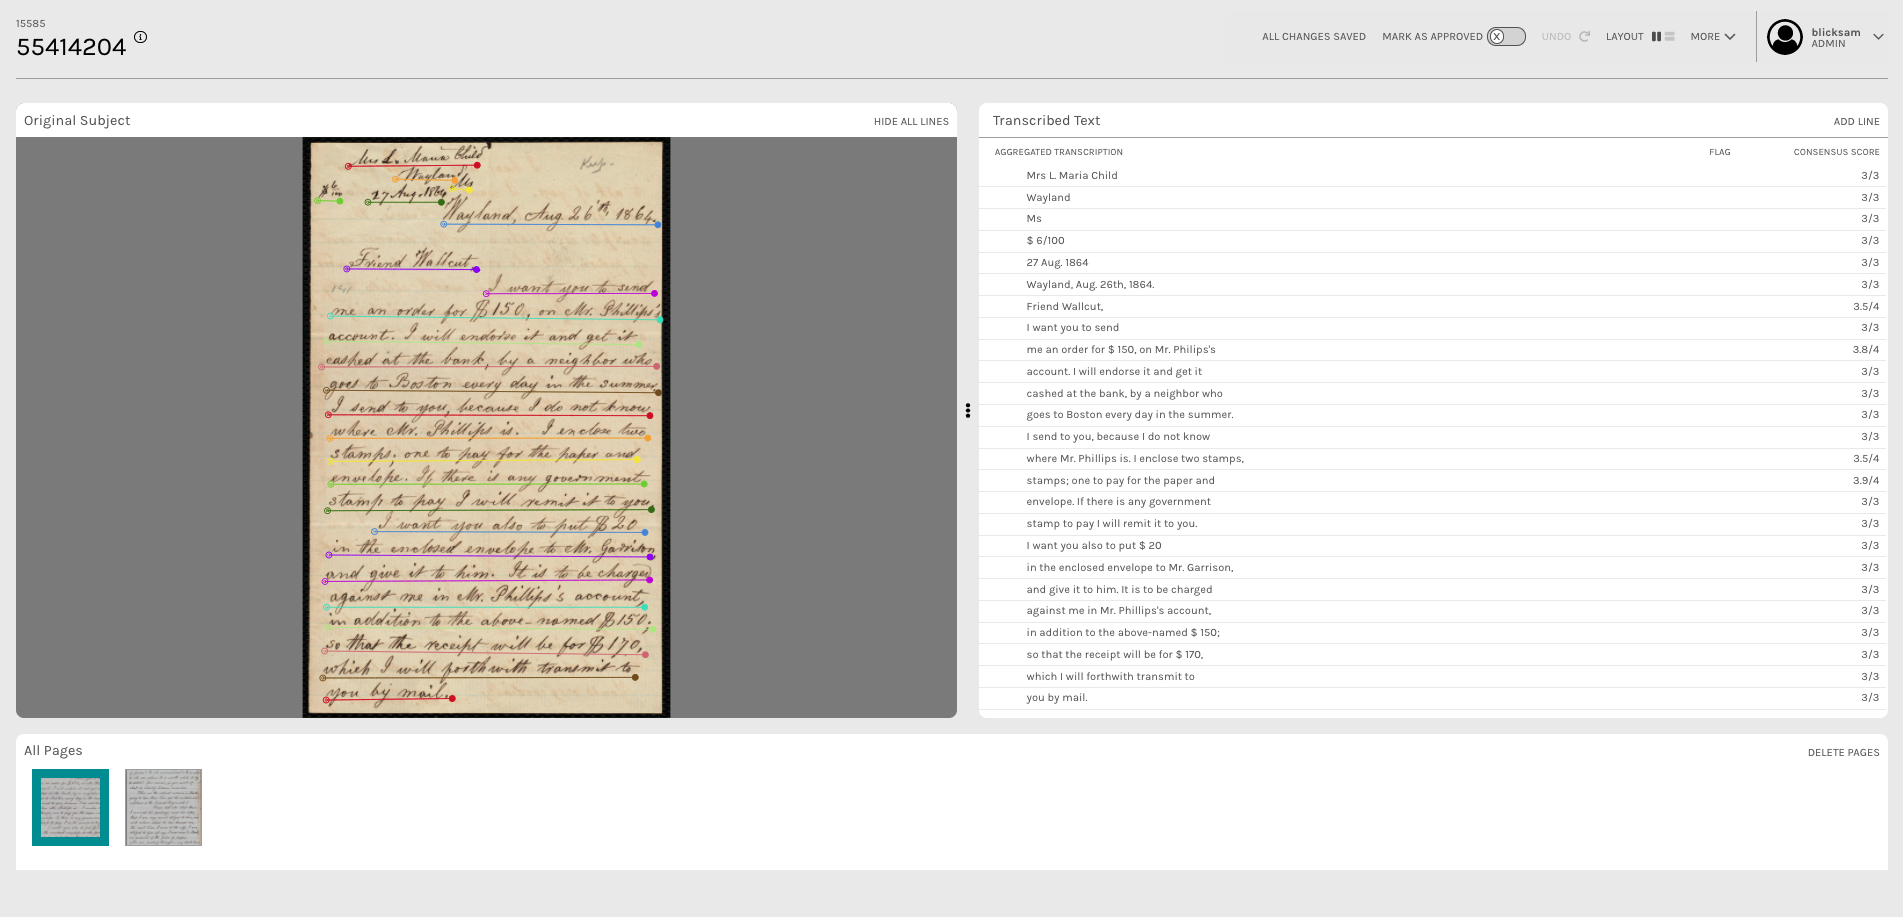 15585
55414204
ALL CHANGES SAVED
MARK AS APPROVED
UNDO
LAYOUT
MORE
blicksam
ADMIN
Original Subject
HIDE ALL LINES
Mrs L. Maria Child
Wayland
Ms
Keep-
$ 6/100
27 Aug. 1864
Wayland, Aug. 26th, 1864.
Friend Wallcut,
I want you to send
me an order for $150, on Mr. Phillips's
account. I will endorse it and get it
cashed at the bank, by a neighbor who
goes to Boston every day in the summer.
I send to you, because I do not know
where Mr. Phillips is. I enclose two
stamps; one to pay for the paper and
envelope. If there is any government
stamp to pay I will remit it to you.
I want you also to put $20
in the enclosed envelope to Mr. Garrison,
and give it to him. It is to be charged
against me in Mr. Phillips's account,
in addition to the above-named $150;
so that the receipt will be for $170,
which I will forthwith transmit to
you by mail.
Transcribed Text
ADD LINE
AGGREGATED TRANSCRIPTION
FLAG
CONSENSUS SCORE
Mrs L. Maria Child 3/3
Wayland 3/3
Ms 3/3
$ 6/100 3/3
27 Aug. 1864 3/3
Wayland, Aug. 26th, 1864. 3/3
Friend Wallcut, 3.5/4
I want you to send 3/3
me an order for $ 150, on Mr. Philips's 3.8/4
account. I will endorse it and get it 3/3
cashed at the bank, by a neighbor who 3/3
goes to Boston every day in the summer. 3/3
I send to you, because I do not know 3/3
where Mr. Phillips is. I enclose two stamps, 3.5/4
stamps; one to pay for the paper and 3.9/4
envelope. If there is any government 3/3
stamp to pay I will remit it to you. 3/3
I want you also to put $ 20 3/3
in the enclosed envelope to Mr. Garrison, 3/3
and give it to him. It is to be charged 3/3
against me in Mr. Phillips's account, 3/3
in addition to the above-named $ 150; 3/3
so that the receipt will be for $ 170, 3/3
which I will forthwith transmit to 3/3
you by mail. 3/3
All Pages
DELETE PAGES